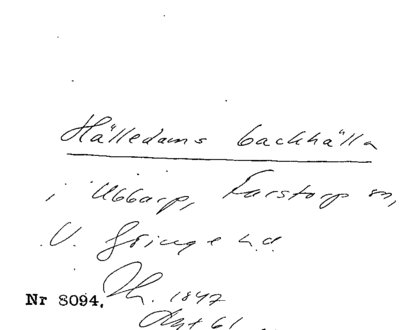 Hälledams backhälla
i Ubbarp, Farstorp sn,
V. Göinge hd.
Nr 8094. Th. 1847
Ant 61